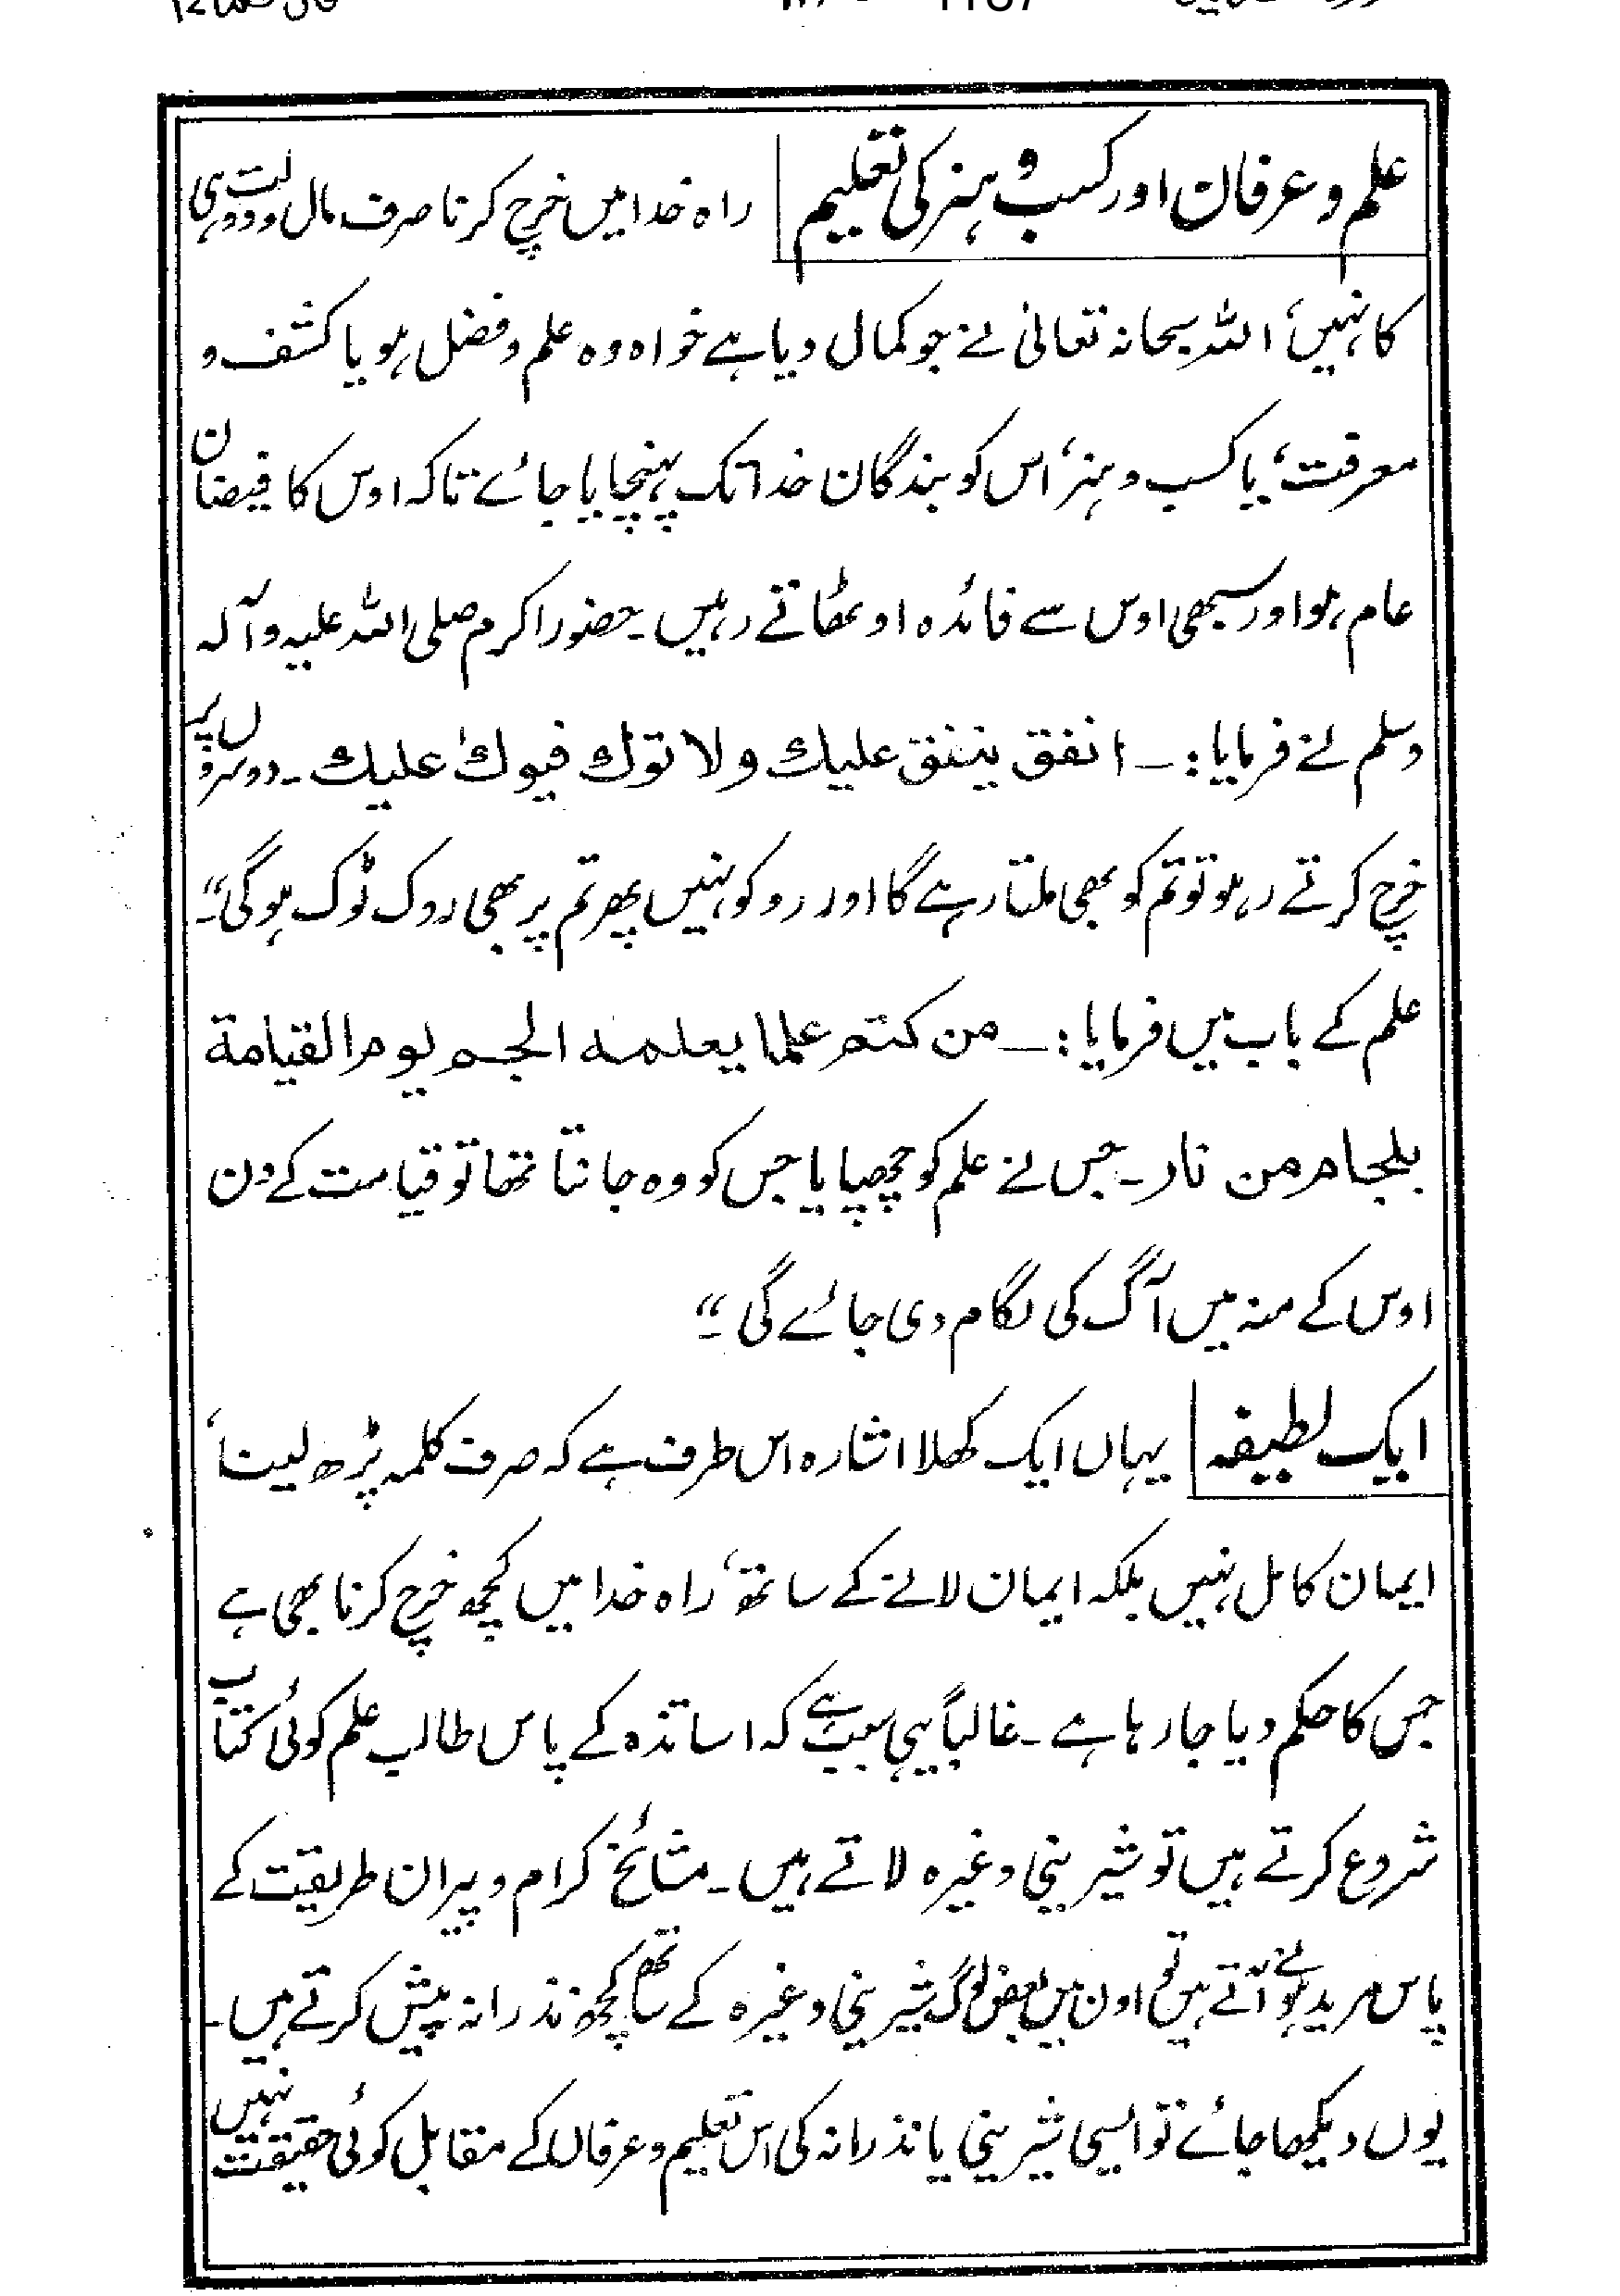 علم و عرفان اور کسب و ہنر کی تعلیم راہ خدا میں خرچ کرنا صرف مال و دولت ہی
کا نہیں، اللہ سبحانہ تعالیٰ نے جو کمال دیا ہے خواہ وہ علم و فضل ہو یا کشف و
معرفت، یا کسب و ہنر، اس کو بندگان خدا تک پہنچایا جائے تاکہ اوس کا فیضان
عام ہو اور سبھی اوس سے فائدہ اوٹھاتے رہیں۔ حضور اکرم صلی اللہ علیہ و آلہ
وسلم نے فرمایا:۔ انفق ینفق علیك ولا توك فیوك علیك۔ دوسروں پر
خرچ کرتے رہو تو تم کو بھی ملتا رہے گا اور روکو نہیں پھر تم پر بھی روک ٹوک ہوگی“۔
علم کے باب میں فرمایا:۔ من كتم علما یعلمه الجم یوم القیامة
بلجام من نار۔ جس نے علم کو چھپایا جس کو وہ جانتا تھا تو قیامت کے دن
اوس کے منہ میں آگ کی لگام دی جائے گی“۔
ایک لطیفہ یہاں ایک کھلا اشارہ اس طرف ہے کہ صرف کلمہ پڑھ لینا،
ایمان کامل نہیں بلکہ ایمان لانے کے ساتھ، راہ خدا میں کچھ خرچ کرنا بھی ہے
جس کا حکم دیا جا رہا ہے۔ غالباً یہی سبب ہے کہ اساتذہ کے پاس طالب علم کوئی کتاب
شروع کرتے ہیں تو شیرینی وغیرہ لاتے ہیں۔ مشائخ کرام و پیران طریقت کے
پاس مرید ہونے آتے ہیں تو اون میں بعض لوگ شیرینی وغیرہ کے ساتھ کچھ نذرانہ پیش کرتے ہیں۔
یوں دیکھا جائے تو ایسی شیرینی یا نذرانہ کی اس تعلیم و عرفاں کے مقابل کوئی حقیقت نہیں